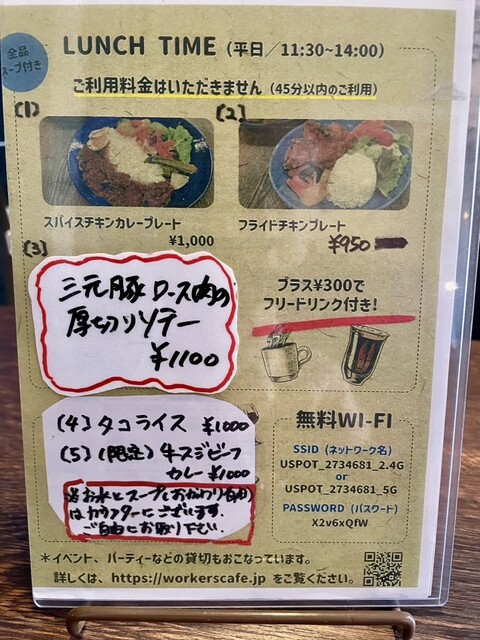 全品
スープ付き
LUNCH TIME (平日／11:30~14:00)
ご利用料金はいただきません (45分以内のご利用)
(1)
(2)
スパイスチキンカレープレート
¥1,000
フライドチキンプレート
¥950
(3)
三元豚ロース肉の
厚切りソテー
¥1100
プラス¥300で
フリードリンク付き!
(4) タコライス ¥1000
(5) (限定) 牛スジビーフ
カレー ¥1000
※お水とスープ(おかわり自由)
はカウンターにございます.
ご自由にお取り下さい.
無料WI-FI
SSID (ネットワーク名)
USPOT_2734681_2.4G
or
USPOT_2734681_5G
PASSWORD (パスワード)
X2v6xQfW
＊イベント、パーティーなどの貸切もおこなっています。
詳しくは、https://workerscafe.jp をご覧ください。